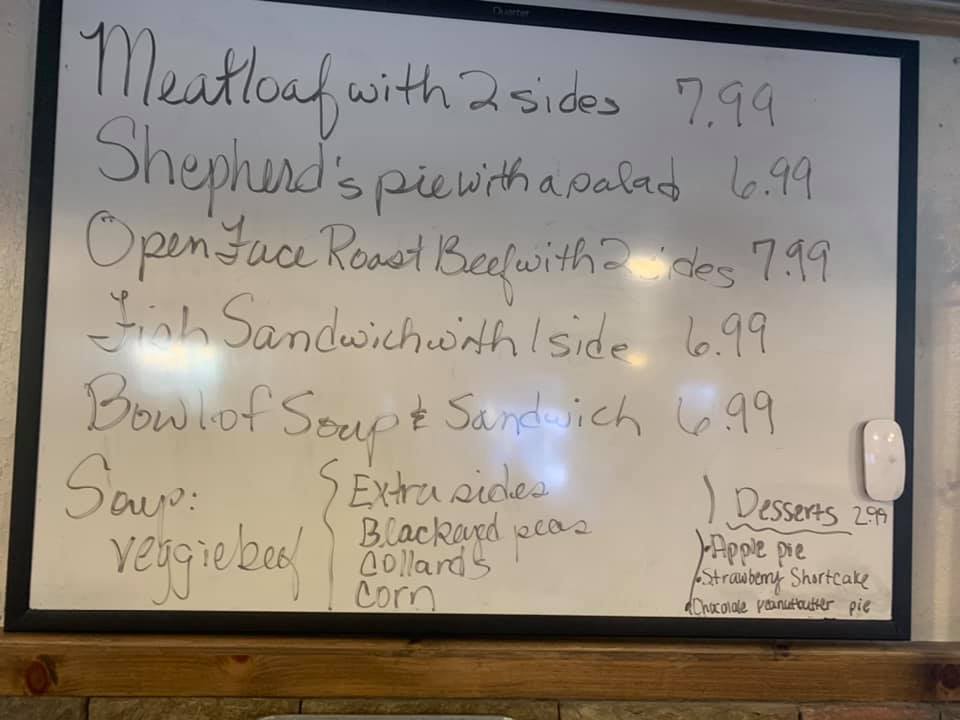 Quartet
Meatloaf with 2 sides 7.99
Shepherd's pie with a salad 6.99
Open Face Roast Beef with 2 sides 7.99
Fish Sandwich with 1 side 6.99
Bowl of Soup & Sandwich 6.99
Soup:
veggie beef
Extra sides
Blackeyed peas
Collards
Corn
Desserts 2.99
• Apple pie
• Strawberry Shortcake
• Chocolate peanutbutter pie